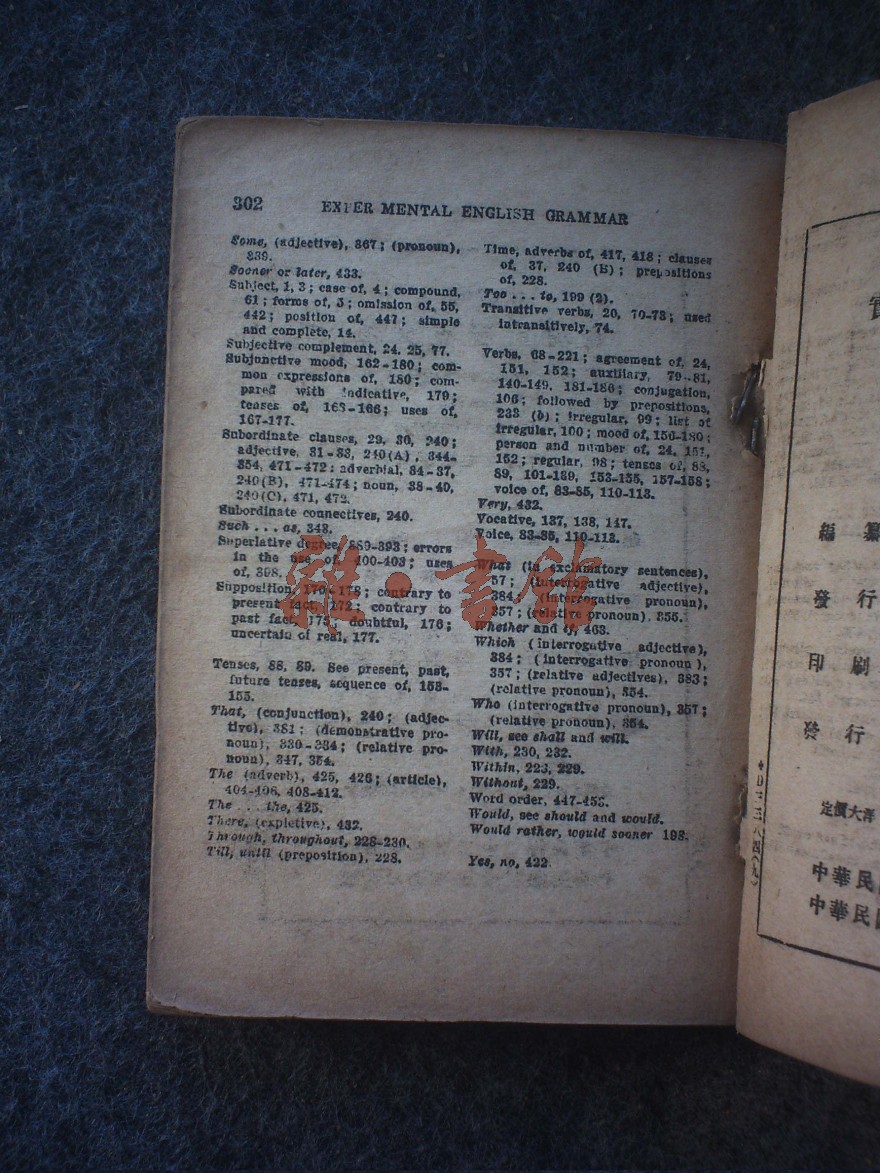 302 EXPER MENTAL ENGLISH GRAMMAR
Some, (adjective), 367; (pronoun),
339.
Sooner or later, 433.
Subject, 1, 3; case of, 4; compound,
61; forms of, 3; omission of, 55,
442; position of, 447; simple
and complete, 14.
Subjective complement, 24, 25, 77.
Subjunctive mood, 162-180; com-
mon expressions of, 180; com-
pared with indicative, 179;
tenses of, 163-166; uses of,
167-177.
Subordinate clauses, 29, 30, 240;
adjective, 31-33, 240(A), 344-
354, 471-472; adverbial, 34-37,
240(B), 471-474; noun, 38-40,
240(C), 471, 472.
Subordinate connectives, 240.
Such . . . as, 348.
Superlative degree, 389-393; errors
in the use of, 400-403; uses
of, 398.
Supposition, 170-178; contrary to
present fact, 172; contrary to
past fact, 175; doubtful, 176;
uncertain of real, 177.
Tenses, 88, 89. See present, past,
future tenses, sequence of, 153-
155.
That, (conjunction), 240; (adjec-
tive), 381; (demonstrative pro-
noun), 330-334; (relative pro-
noun), 347, 354.
The (adverb), 425, 426; (article),
404-406, 408-412.
The . . . the, 425.
There, (expletive), 432.
Through, throughout, 228-230.
Till, until (preposition), 228.
Time, adverbs of, 417, 418; clauses
of, 37, 240 (B); prepositions
of, 228.
Too . . . to, 199 (2).
Transitive verbs, 20, 70-73; used
intransitively, 74.
Verbs, 68-221; agreement of, 24,
151, 152; auxiliary, 79-81,
140-149, 181-186; conjugation,
106; followed by prepositions,
233 (b); irregular, 99; list of
irregular, 100; mood of, 150-180;
person and number of, 24, 151,
152; regular, 98; tenses of, 88,
89, 101-139, 153-155, 157-158;
voice of, 83-85, 110-113.
Very, 432.
Vocative, 137, 138, 147.
Voice, 83-85, 110-113.
What (in exclamatory sentences),
57; (interrogative adjective),
384; (interrogative pronoun),
357; (relative pronoun), 355.
Whether and if, 463.
Which (interrogative adjective),
384; (interrogative pronoun),
357; (relative adjectives), 383;
(relative pronoun), 354.
Who (interrogative pronoun), 357;
(relative pronoun), 354.
Will, see shall and will.
With, 230, 232.
Within, 228, 229.
Without, 229.
Word order, 447-453.
Would, see should and would.
Would rather, would sooner 198.
Yes, no, 422
雜·書館
實
編 纂
發 行
印 刷
發 行
定價大洋
中華民
中華民